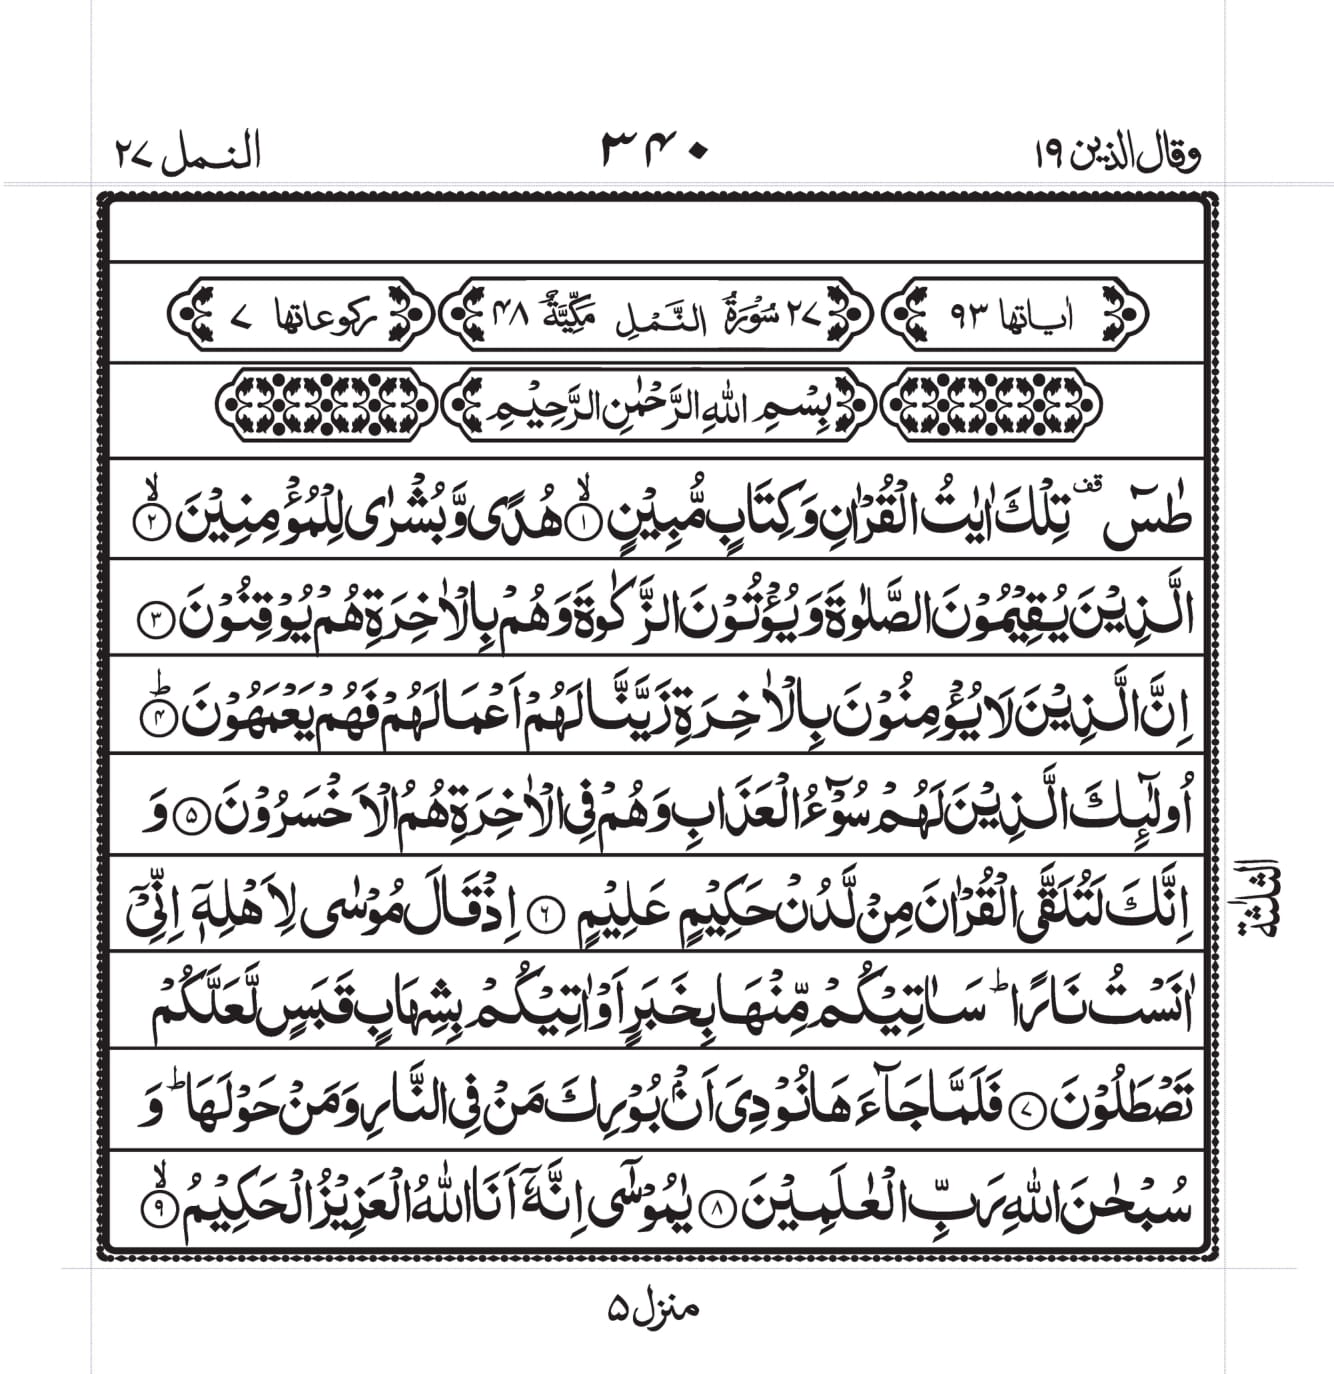 وقال الذين ١٩ ٣٤٠ النمل ٢٧
اٰیاتها ٩٣ ٢٧ سُوۡرَةُ النَّمۡلِ مَكِّيَّةٌ ٤٨ رکوعاتها ٧
بِسۡمِ اللهِ الرَّحۡمٰنِ الرَّحِيۡمِ
طٰسٓ ࣞ تِلۡكَ اٰيٰتُ الۡقُرۡاٰنِ وَكِتَابٍ مُّبِيۡنٍ ۙ‏﴿۱﴾ هُدًى وَّبُشۡرٰى لِلۡمُؤۡمِنِيۡنَ ۙ‏﴿۲﴾
الَّذِيۡنَ يُقِيۡمُوۡنَ الصَّلٰوةَ وَيُؤۡتُوۡنَ الزَّكٰوةَ وَهُمۡ بِالۡاٰخِرَةِ هُمۡ يُوۡقِنُوۡنَ ﴿۳﴾
اِنَّ الَّذِيۡنَ لَا يُؤۡمِنُوۡنَ بِالۡاٰخِرَةِ زَيَّنَّا لَهُمۡ اَعۡمَالَهُمۡ فَهُمۡ يَعۡمَهُوۡنَ ؕ‏﴿۴﴾
اُولٰٓٮِٕكَ الَّذِيۡنَ لَهُمۡ سُوۡٓءُ الۡعَذَابِ وَهُمۡ فِى الۡاٰخِرَةِ هُمُ الۡاَخۡسَرُوۡنَ ﴿۵﴾ وَ
اِنَّكَ لَتُلَقَّى الۡقُرۡاٰنَ مِنۡ لَّدُنۡ حَكِيۡمٍ عَلِيۡمٍ ﴿۶﴾ اِذۡ قَالَ مُوۡسٰى لِاَهۡلِهٖۤ اِنِّىۡۤ
اٰنَسۡتُ نَارًا ؕ سَاٰتِيۡكُمۡ مِّنۡهَا بِخَبَرٍ اَوۡ اٰتِيۡكُمۡ بِشِهَابٍ قَبَسٍ لَّعَلَّكُمۡ
تَصۡطَلُوۡنَ ﴿۷﴾ فَلَمَّا جَآءَهَا نُوۡدِىَ اَنۡۢ بُوۡرِكَ مَنۡ فِى النَّارِ وَمَنۡ حَوۡلَهَا ؕ وَ
سُبۡحٰنَ اللهِ رَبِّ الۡعٰلَمِيۡنَ ﴿۸﴾ يٰمُوۡسٰٓى اِنَّهٗۤ اَنَا اللهُ الۡعَزِيۡزُ الۡحَكِيۡمُ ۙ‏﴿۹﴾
الثلثة
منزل ۵